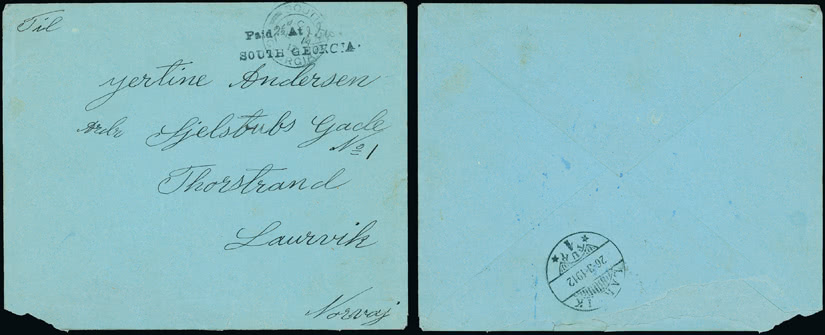 Til
Paid At
SOUTH GEORGIA.
yertine Andersen
Adr Sjelstubs Gade
No 1
Thorstrand
Laurvik
Norvaj
26-3-1912